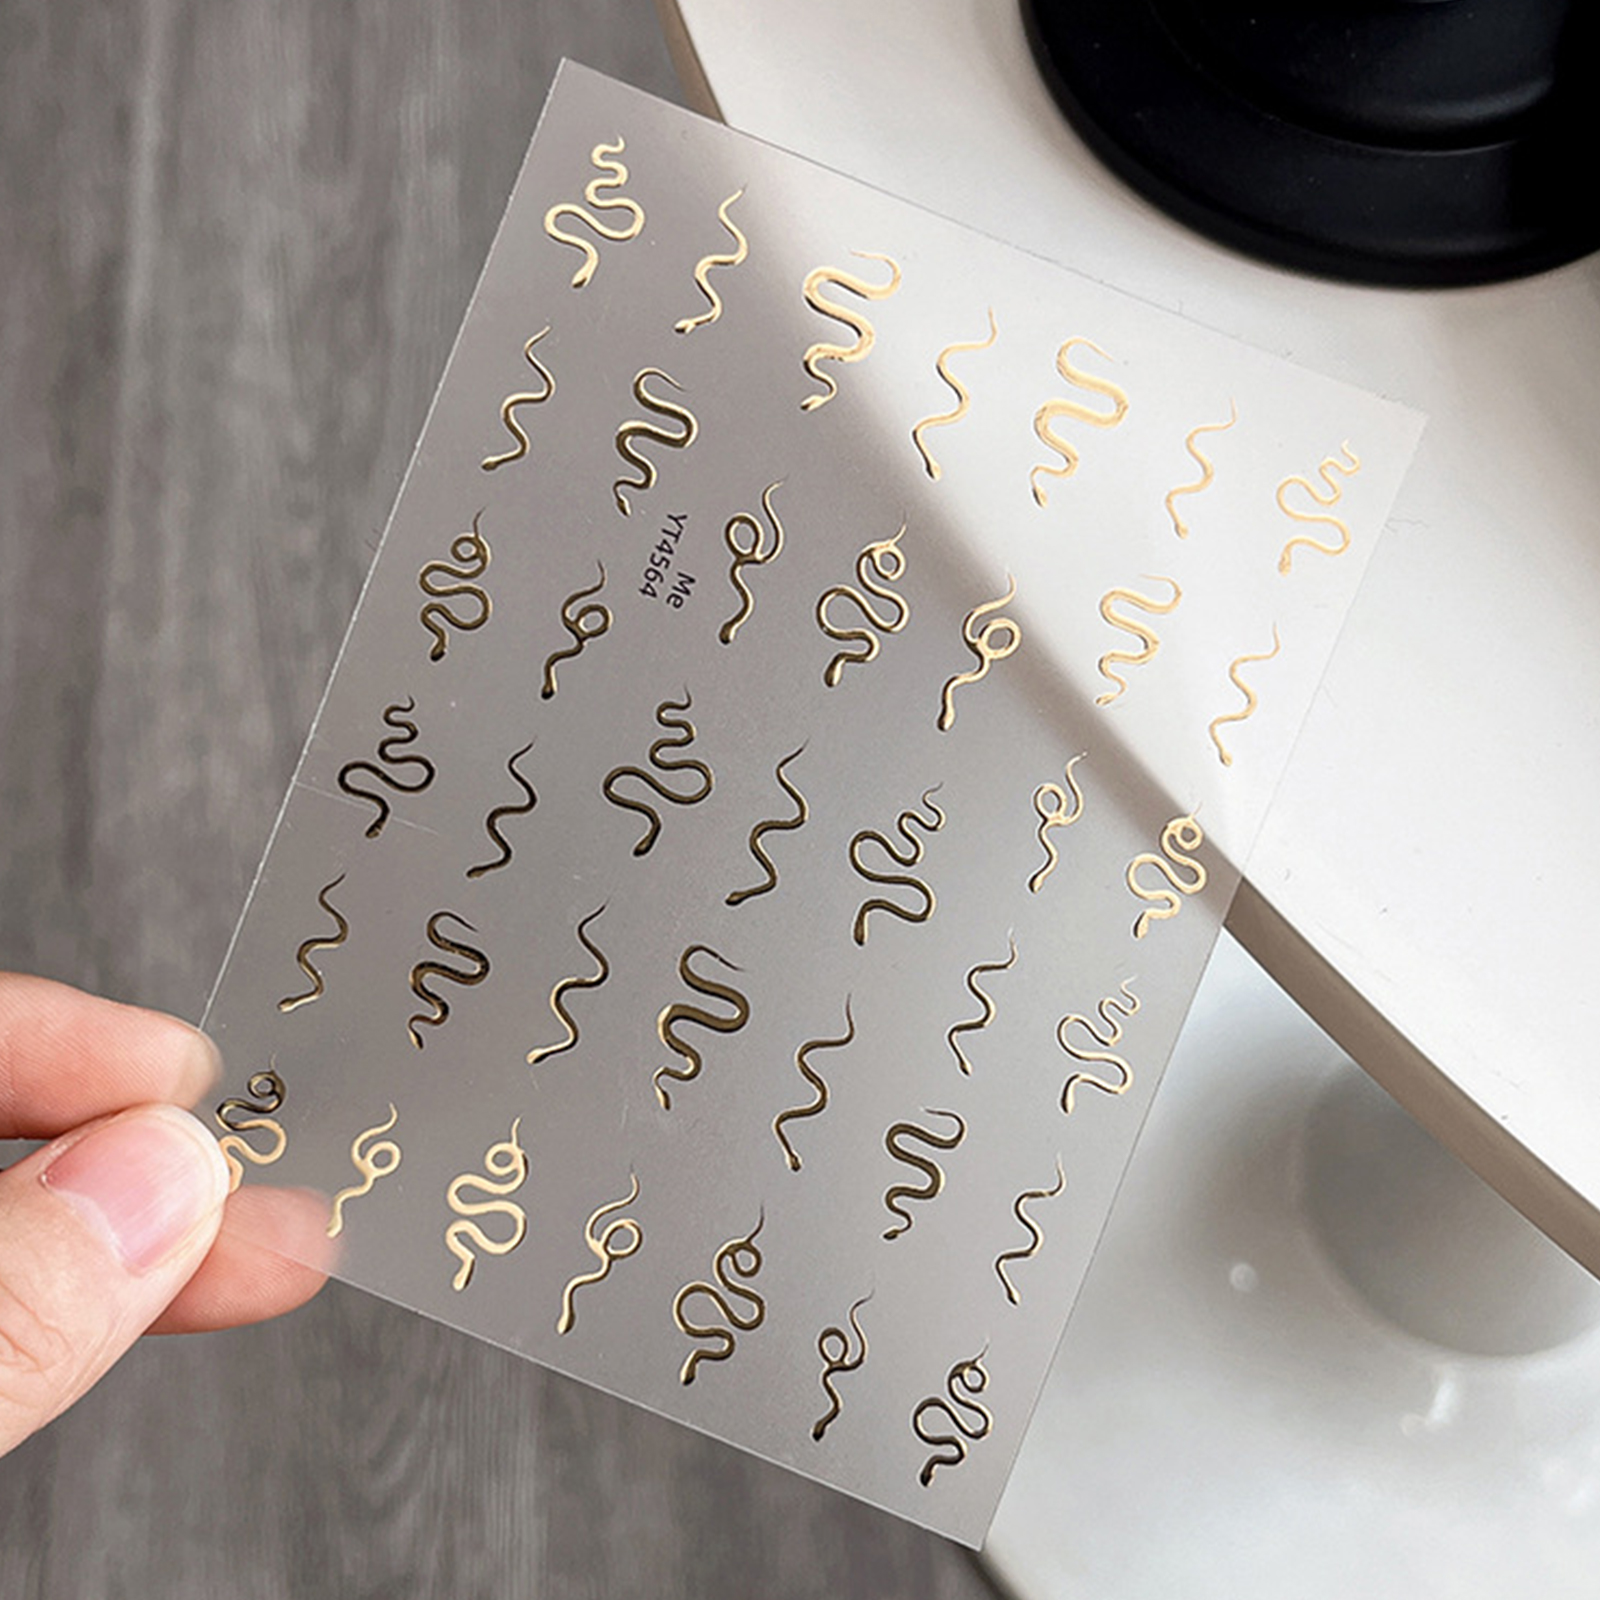 Me
YT4564